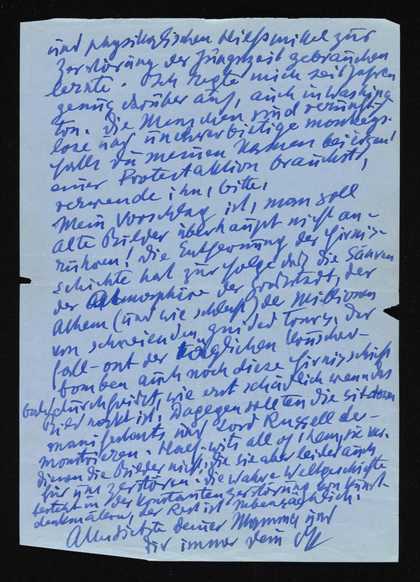 und physikalischen Hilfsmittel zur
Zerstörung der Jüngstzeit gebrauchen
lernte. Ich regte mich seit Jahren
genug darüber auf, auch in Washing-
ton. Die Menschen sind vernunft-
lose und unehrerbietige monkeys.
falls du meinen Namen bei irgend
einer Protestaktion brauchst,
verwende ihn, bitte.
Mein Vorschlag ist, man soll
alte Bilder überhaupt nicht an-
rühren! Die Entfernung der Firnis-
schichte hat zur folge daß die Säuren
der Atmosphäre der Großstadt, der
Athem (und wie schlecht) der Millionen
von schreienden guided Tours, der
fall-out der täglichen
bomben auch noch diese Firnisschicht
durchfrißt, wie erst schädlich wenn das
Bild nackt ist! Dagegen sollten die sit down
manifestants und Lord Russell de-
monstrieren. Half wits all of them, sie ver-
dienen die Bilder nicht, die sie aber leider auch
für uns zerstören. Die wahre Weltgeschichte
besteht in der konstanten Zerstörung von Kunst
denkmälern, der Rest ist nebensächlich.
Allerdickste deiner und
Dir immer dein OK